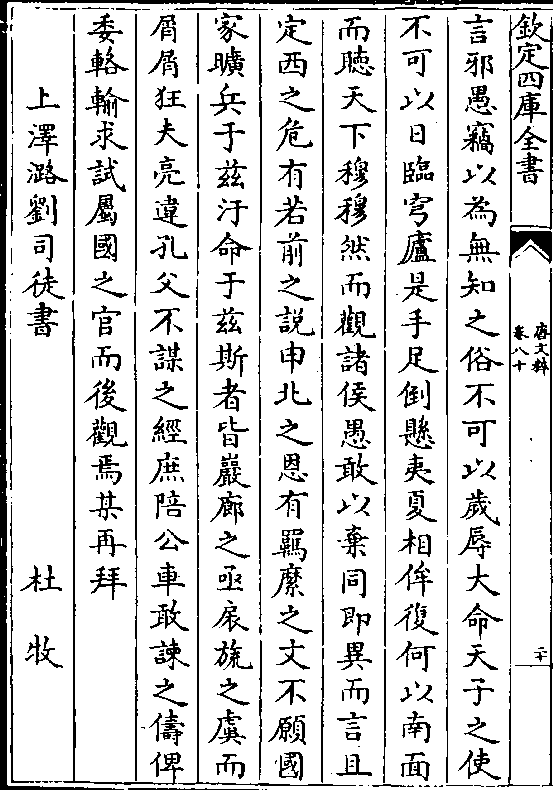 欽定四庫全書
唐文粹
卷八十
二十
言邪愚竊以為無知之俗不可以歲辱大命天子之使
不可以日臨穹廬是手足倒懸夷夏相侔復何以南面
而聽天下穆穆然而觀諸侯愚敢以棄同即異而言且
定西之危有若前之說申北之恩有羈縻之文不願國
家曠兵于兹汙命于兹斯者皆巖廊之亟扆旒之虞而
屑屑狂夫亮違孔父不謀之經庶陪公車敢諫之儔俾
委輅輸求試屬國之官而後觀焉某再拜
上澤潞劉司徒書 杜牧